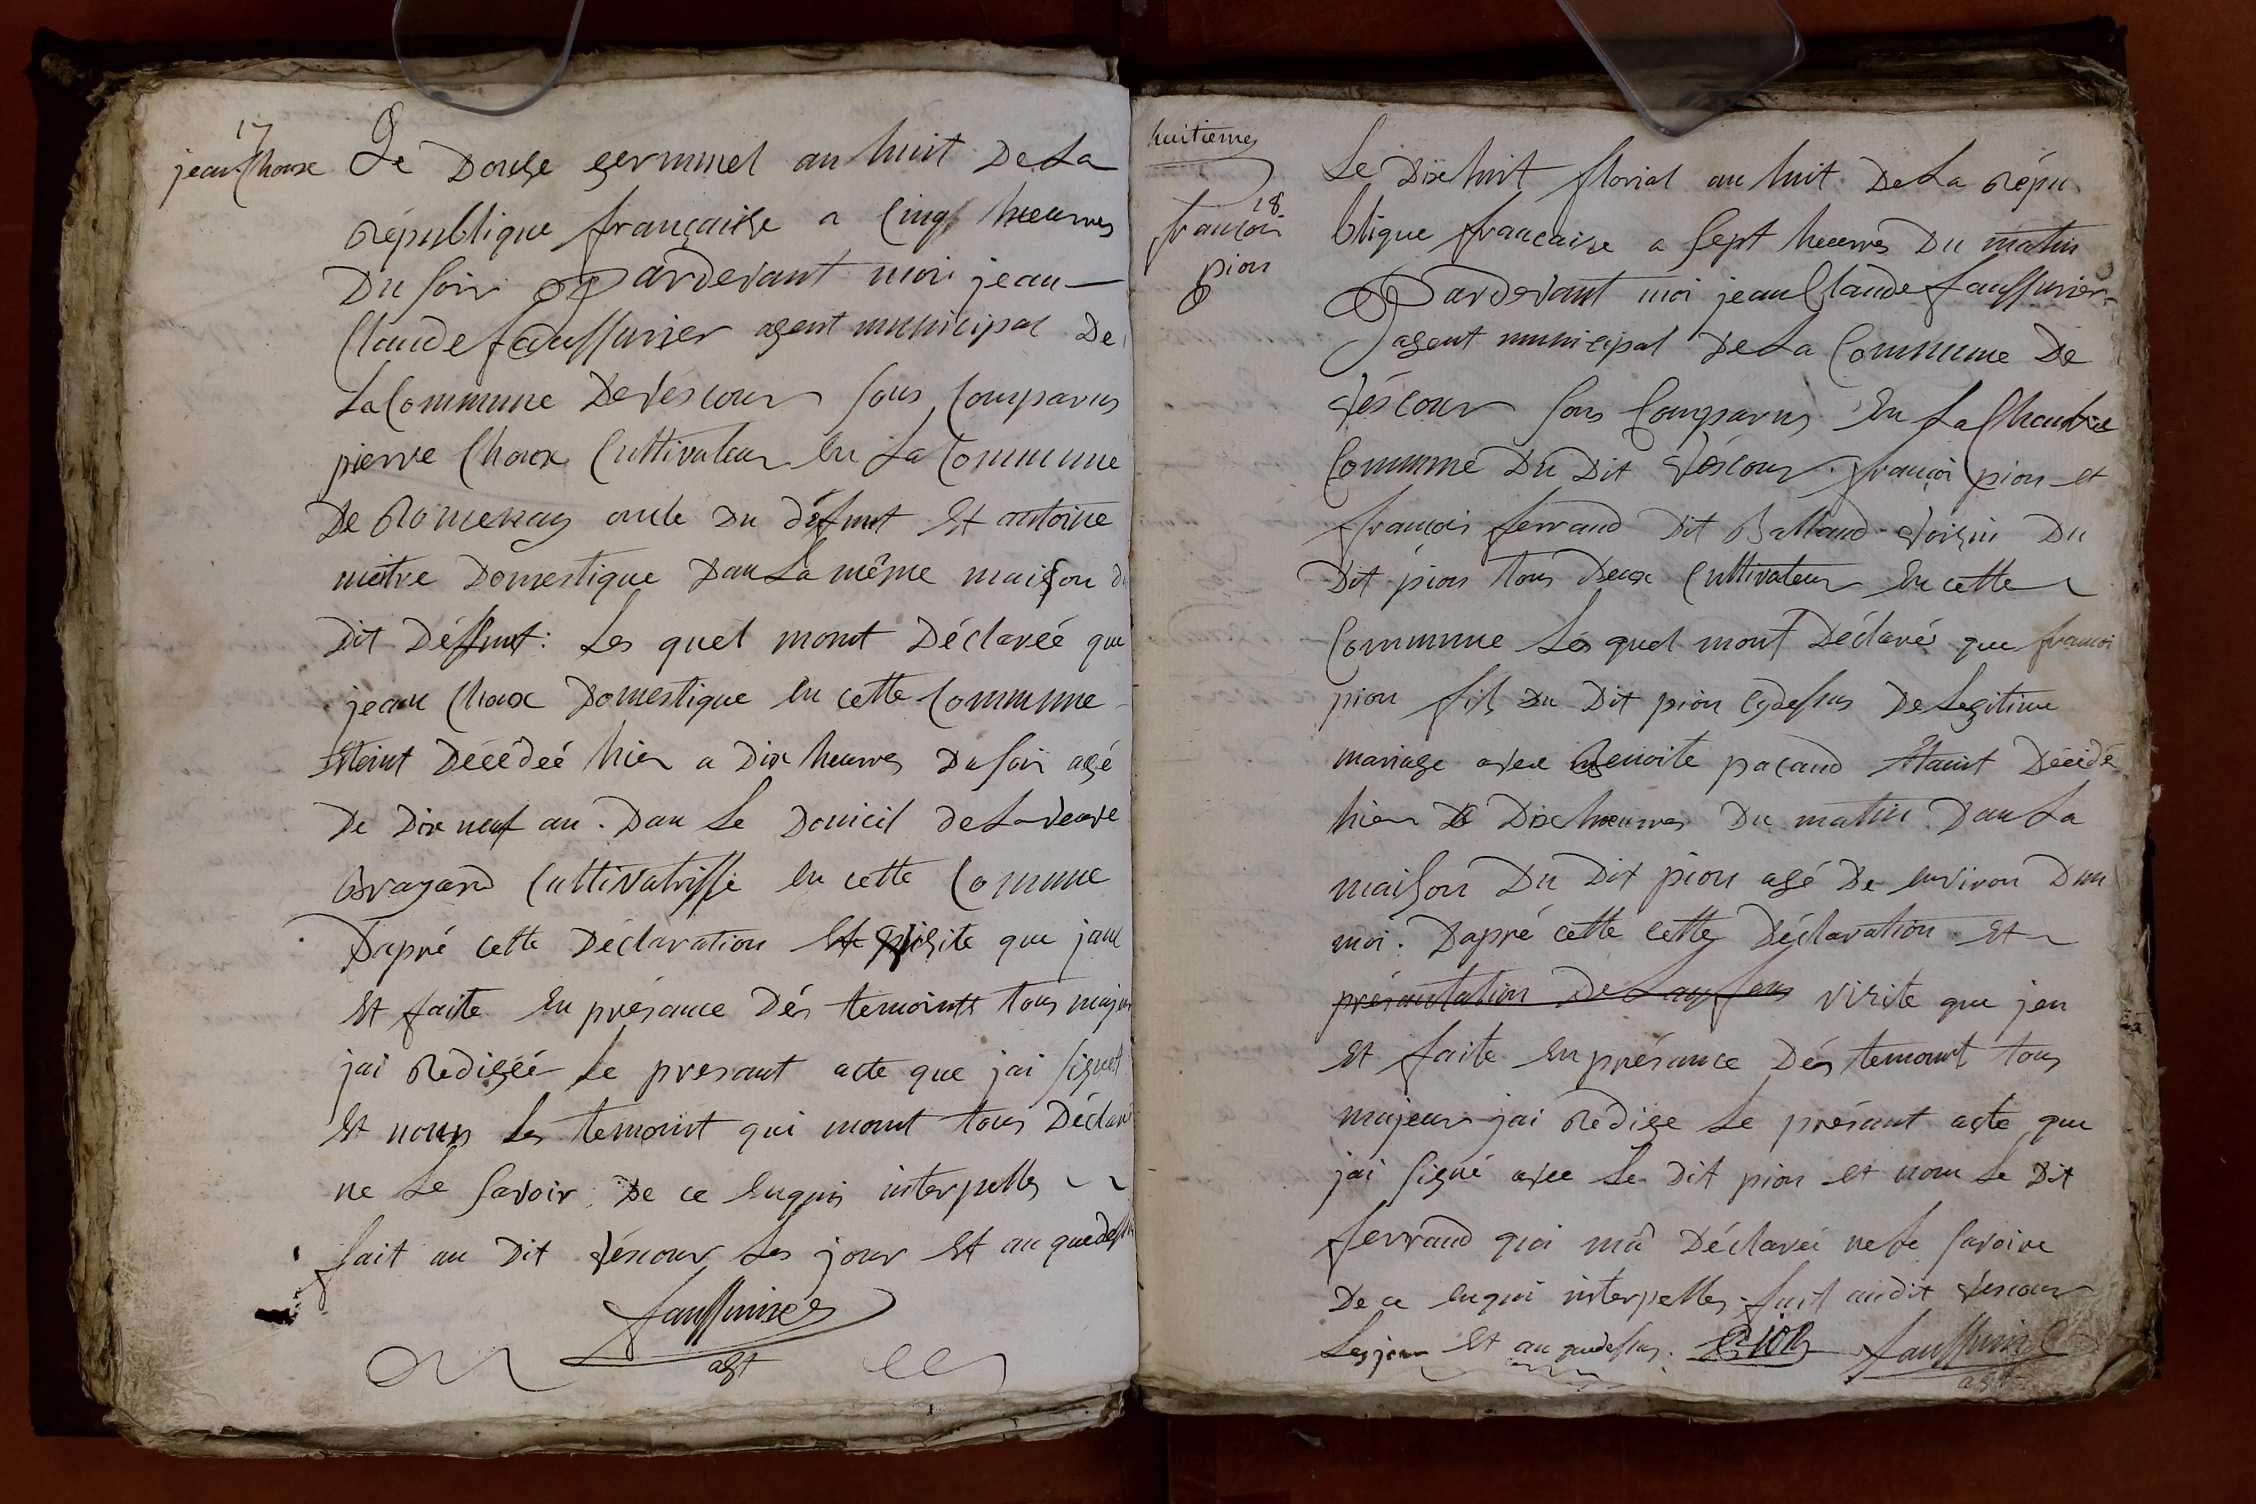 17
jean Choux
Le Douze germinel an huit De La
république françaisse a Cinq heeurres
Du soir Pardevant moi jean
Claude faussurier agent municipal De
La Commune De vescour sous Comparus
pierre Choux Cultivateur En La Commune
De Romenay oncle Du défunt Et antoine
maitre Domestique Dan La même maison du
Dit Défunt: Les quel mont Déclareé que
jean Choux Domestique En cette Commune
Etoint Décédeé hier a Dix heurres Du soir agé
De Dix neuf an. Dan Le Domicil De La veuve
Brayard Cultivatrisse En cette Commune
Dapré cette Déclaration Et visite que jane
Et faite En présance Dés temointt tous majeur
jai Redigéé Le presant acte que jai signet
Et nonn Les temoint qui mont tous Déclaré
ne Le savoir De ce Enquis interpelles
fait au Dit véscour Les jour Et an quedessus
faussurier
agt
huitieme
18
françoi
pion
Le Dixhuit florial an huit De La répu
blique francaise a sept heeurres Du matin
Pardevant moi jean Claude faussurier
agent municipal De La Commune De
véscour sous Comparus En La Chambre
Commune Du Dit véscour françoi pion Et
françois ferrand Dit Balland voisin Du
Dit pion tous Deux Cultivateur En cette
Commune Lés quel mont Déclarés que francoi
pion fils Du Dit pion Cydessus De Legitime
mariage avec Benoite pacaud Etaint Décédé
hier a Dix heurres Du matin Dan La
maison Du Dit pion agé De Environ Dun
moi. Dapré cette cette Déclaration Et
présantation De visite que jen
Et faite En présance Dés temoint tous
majeur jai Redige Le présant acte que
jai signé avec Le Dit pion Et non Le Dit
ferrand qui mâ Déclareé ne Le savoire
De ce Enqui interpelles fait audit vescour
Les jour Et an quedessus. pion faussurier
agt